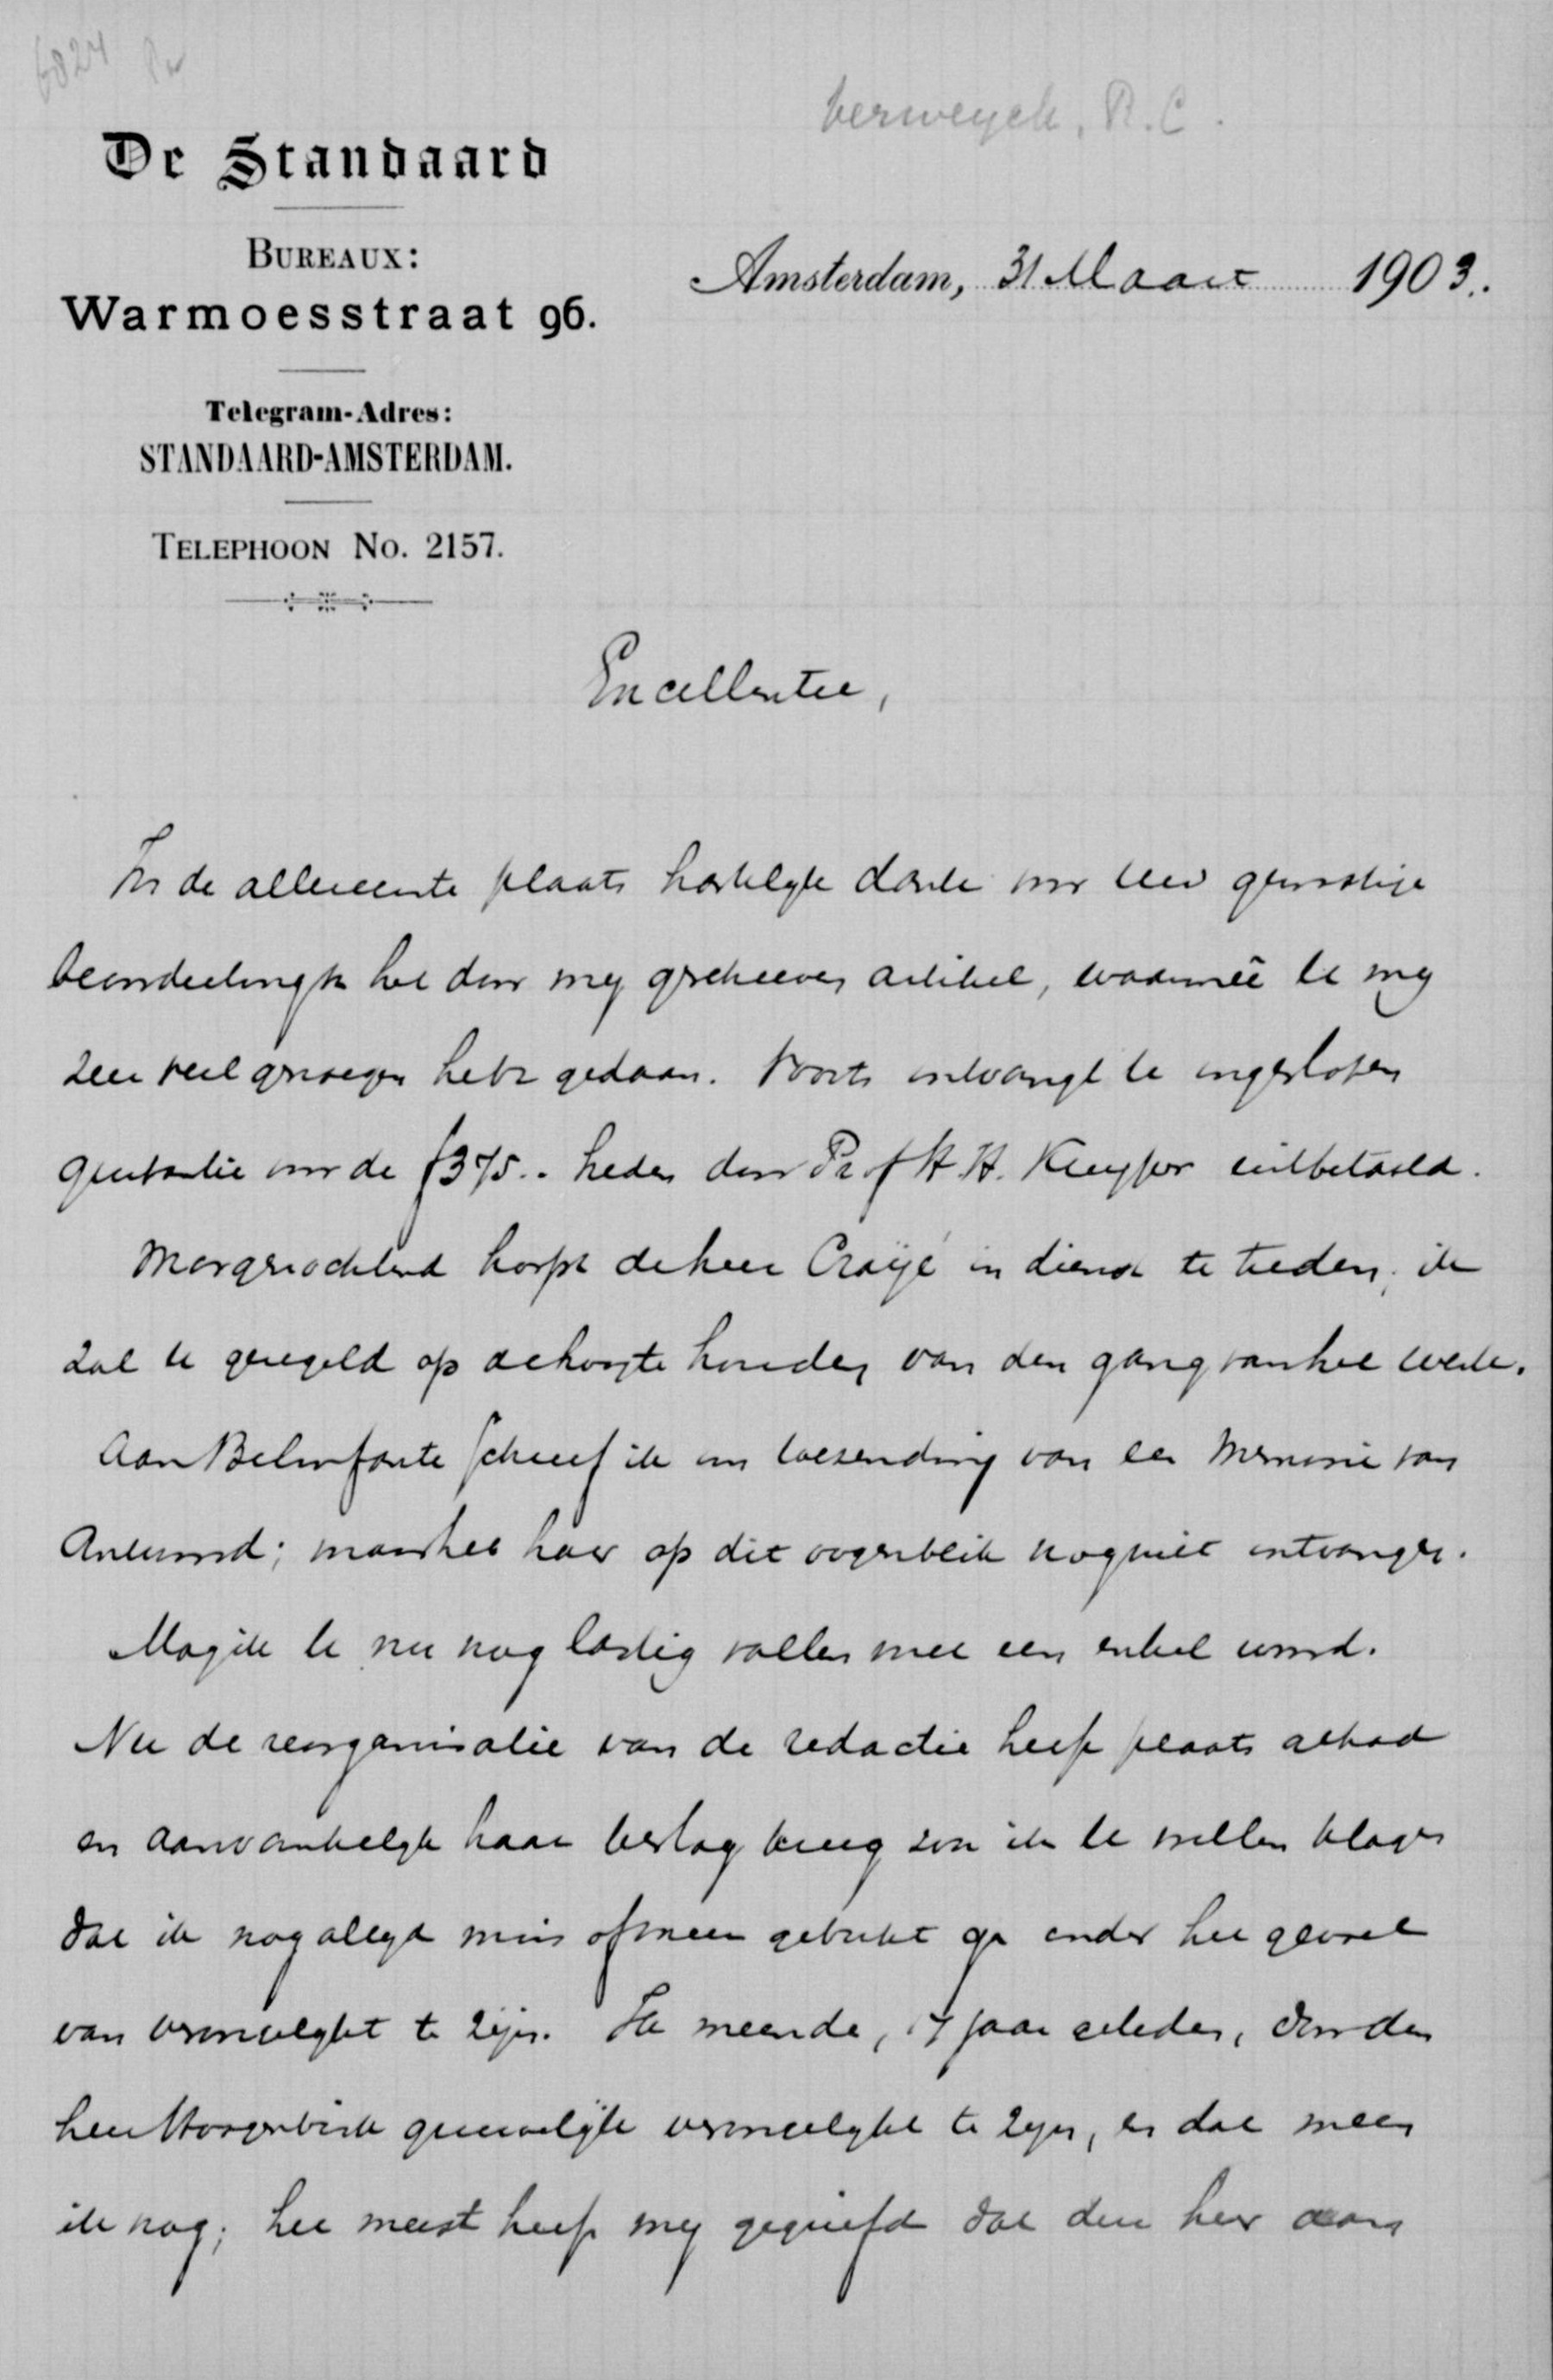 6824
Verweyck, R. C.
De Standaard
BUREAUX:
Warmoesstraat 96.
Amsterdam, 31 Maart 1903.
Telegram-Adres:
STANDAARD-AMSTERDAM.
TELEPHOON No. 2157.
Excellentie,
In de allereerste plaats hartelyk dank voor Uw gunstige
beoordeeling het door my geschreven artikel, waarmeê U my
zeer veel genoegen hebt gedaan. Voorts ontvangt U ingesloten
quitantie voor de f375.- heden door Prof H. H. Kuyper uitbetaald.
Morgenochtend hoopt de heer Crayé in dienst te treden; ik
zal U geregeld op de hoogte houden van den gang van het werk.
Aan Belinfante schreef ik om toezending van de Memorie van
Antwoord; maar heb haar op dit oogenblik nog niet ontvangen.
Mag ik U nu nog lastig vallen met een enkel woord.
Nu de reorganisatie van de redactie heeft plaats gehad
en aanvankelyk haar beslag kreeg zou ik U willen klagen
dat ik nog altyd min of meer gebukt ga onder het gevoel
van verongelykt te zijn. Ik meende, 17 jaar geleden, door den
heer Hoogenbirk gruwelijk verongelykt te zyn, en dat meen
ik nog; het meest heeft my gegriefd dat den heer